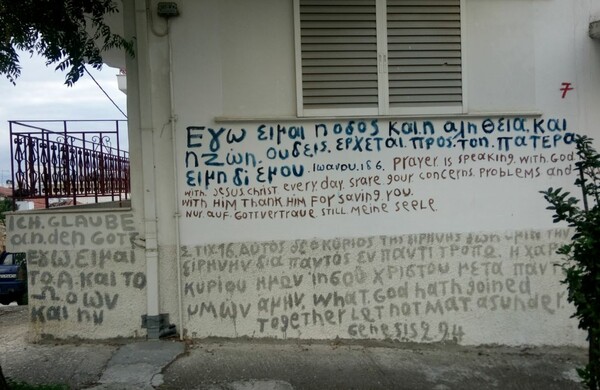 7
Εγω ειμαι η οδος και η αληθεια. και
η ζωη. ουδεις. ερχεται. προς. τον. πατερα
ειμη δι εμου. Ιωανου. 18 6. prayer. is speaking. with God
with. Jesus. christ every. day. srare your concerns. problems and
with HIM Thank HIM For saving you.
Nur. auf. Gott vertraue still meine seele
ICH. GLAUBE
an. den GOTT
ΕΓω. ειμαι
το. Α. και το
Ω Ο ων
και ην
ΣΤΙχ16. Αυτος δε ο κυριος της ειρηνης δωη υμιν την
ειρηνην δια παντος εν παντι τροπω. Η χαρ
κυριου ημων ιησου χριστου μετα παντ
υμων αμην. what. God hath goined
Together let not mat asunder
Genesis 2. 24